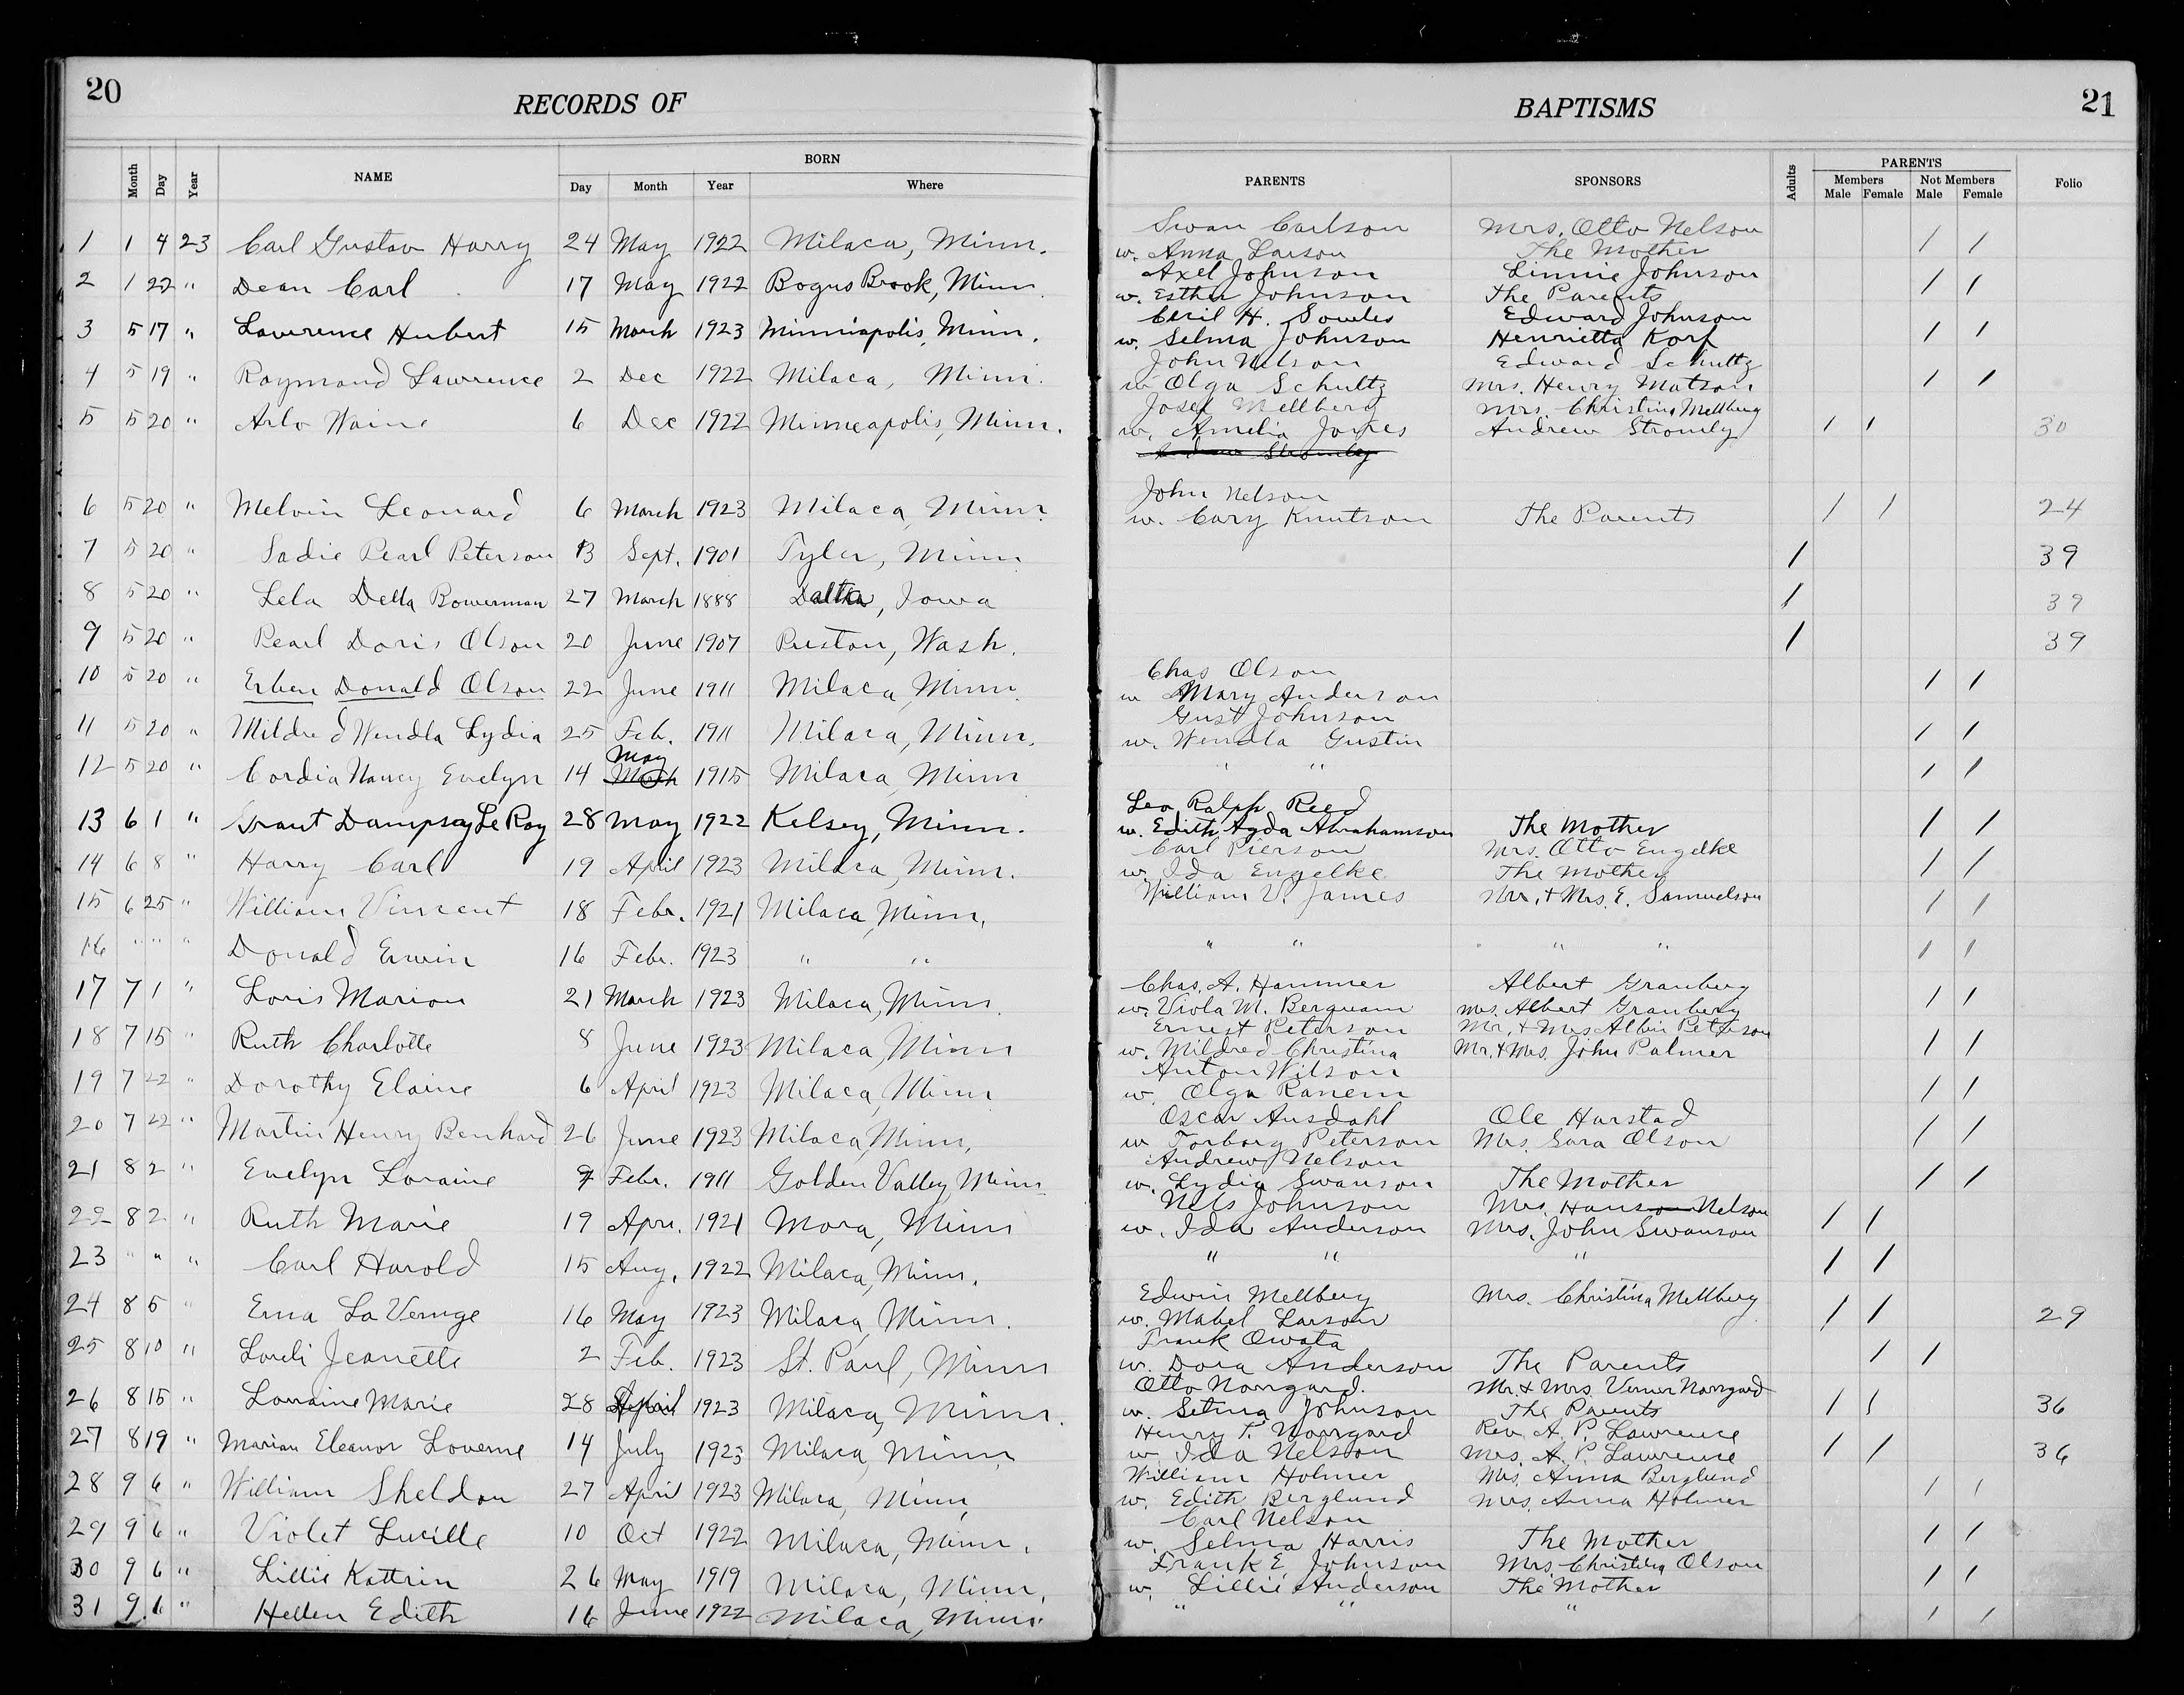 20
RECORDS OF
Month Day Year NAME BORN
Day Month Year Where
1 1 4 23 Carl Gustav Harry 24 May 1922 Milaca, Minn.
2 1 22 " Dean Carl 17 May 1922 Bogus Brook, Minn.
3 5 17 " Lawrence Hubert 15 March 1923 Minniapolis, Minn.
4 5 19 " Raymond Lawrence 2 Dec 1922 Milaca, Minn.
5 5 20 " Arlo Waine 6 Dec 1922 Minneapolis, Minn.
6 5 20 " Melvin Leonard 6 March 1923 Milaca, Minn.
7 5 20 " Sadie Pearl Peterson 13 Sept. 1901 Tyler, Minn
8 5 20 " Lela Della Bowerman 27 March 1888 , Iowa
9 5 20 " Pearl Doris Olson 20 June 1907 Preston, Wash.
10 5 20 " Erben Donald Olson 22 June 1911 Milaca, Minn.
11 5 20 " Mildred Wendla Lydia 25 Feb. 1911 Milaca, Minn.
May
12 5 20 " Cordia Nancy Evelyn 14 March 1915 Milaca, Minn
13 6 1 " Grant Dampsay Le Roy 28 May 1922 Kelsey, Minn.
14 6 8 " Harry Carl 19 April 1923 Milaca, Minn.
15 6 25 " William Vincent 18 Febr. 1921 Milaca, Minn.
16 " " " Donald Erwin 16 Febr. 1923 " "
17 7 1 " Loris Marion 21 March 1923 Milaca, Minn.
18 7 15 " Ruth Charlotte 8 June 1923 Milaca, Minn
19 7 22 " Dorothy Elaine 6 April 1923 Milaca, Minn
20 7 22 " Martin Henry Benhard 26 June 1923 Milaca, Minn.
21 8 2 " Evelyn Loraine Febr. 1911 Golden Valley, Minn.
22 8 2 " Ruth Marie 19 Apr. 1921 Mora, Minn
23 " " " Carl Harold 15 Aug. 1922 Milaca, Minn.
24 8 5 " Erna La Vernge 16 May 1923 Milaca, Minn.
25 8 10 " Jeanette 2 Feb. 1923 St. Paul, Minn
26 8 15 " Lorraine Marie 28 April 1923 Milaca, Minn.
27 8 19 " Marian Eleanor Loverne 14 July 1923 Milaca, Minn.
28 9 6 " William Sheldon 27 April 1923 Milaca, Minn.
29 9 6 " Violet Lucille 10 Oct 1922 Milaca, Minn.
30 9 6 " Lillie Kattrin 26 May 1919 Milaca, Minn.
31 9 6 " Hellen Edith 16 June 1922 Milaca, Minn.
21
BAPTISMS
PARENTS SPONSORS Adults PARENTS Folio
Members Not Members
Male Female Male Female
Swan Carlson Mrs. Otto Nelson
w. Anna Larson The Mother / /
Axel Johnson Linnie Johnson
w. Esther Johnson The Parents / /
Cecil H. Sowles Edward Johnson
w. Selma Johnson Henrietta Korf / /
John Nelson Edward Schultz
w Olga Schultz Mrs. Henry Matson / /
Josef Mellberg Mrs. Christina Mellberg
w. Amelia Jones Andrew Stromly / / 30
John Nelson
w. Cary Knutson The Parents / / 24
/ 39
/ 39
/ 39
Chas Olson
w Mary Anderson / /
Gust Johnson
w. Wendla Gustin / /
" " / /
Leo Ralph Reed
w. Edith Agda Abrahamson The Mother / /
Carl Pierson Mrs. Otto Engelke
w. Ida Engelke The Mother / /
William V. James Mr. + Mrs. E. Samuelson / /
" " " " / /
Chas. A. Hammer Albert Granberg
w. Viola M. Bergquam Mrs. Albert Granberg / /
Ernest Peterson Mr. + Mrs Albin Peterson
w. Mildred Christina Mr. + Mrs. John Palmer / /
Anton Wilson
w. Olga Ranem / /
Oscar Ausdahl Ole Harstad
w Torborg Peterson Mrs. Sara Olson / /
Andrew Nelson
w. Lydia Swanson The Mother / /
Nels Johnson Mrs. Hanson Nelson
w. Ida Anderson Mrs. John Swanson / /
" " " / /
Edwin Mellberg Mrs. Christina Mellberg
w. Mabel Larson / / 29
Frank Owata
w. Dora Anderson The Parents / /
Otto Norrgard. Mr. & Mrs. Verner Norrgard
w. Selma Johnson The Parents / / 36
Henry T. Norrgard Rev. A. P. Lawrence
w. Ida Nelson Mrs. A. P. Lawrence / / 36
William Holmer Mrs. Anna Berglund
w. Edith Berglund Mrs. Anna Holmer / /
Carl Nelson
w. Selma Harris The Mother / /
Frank E. Johnson Mrs. Christina Olson
w. Lillie Anderson The Mother / /
" " " / /